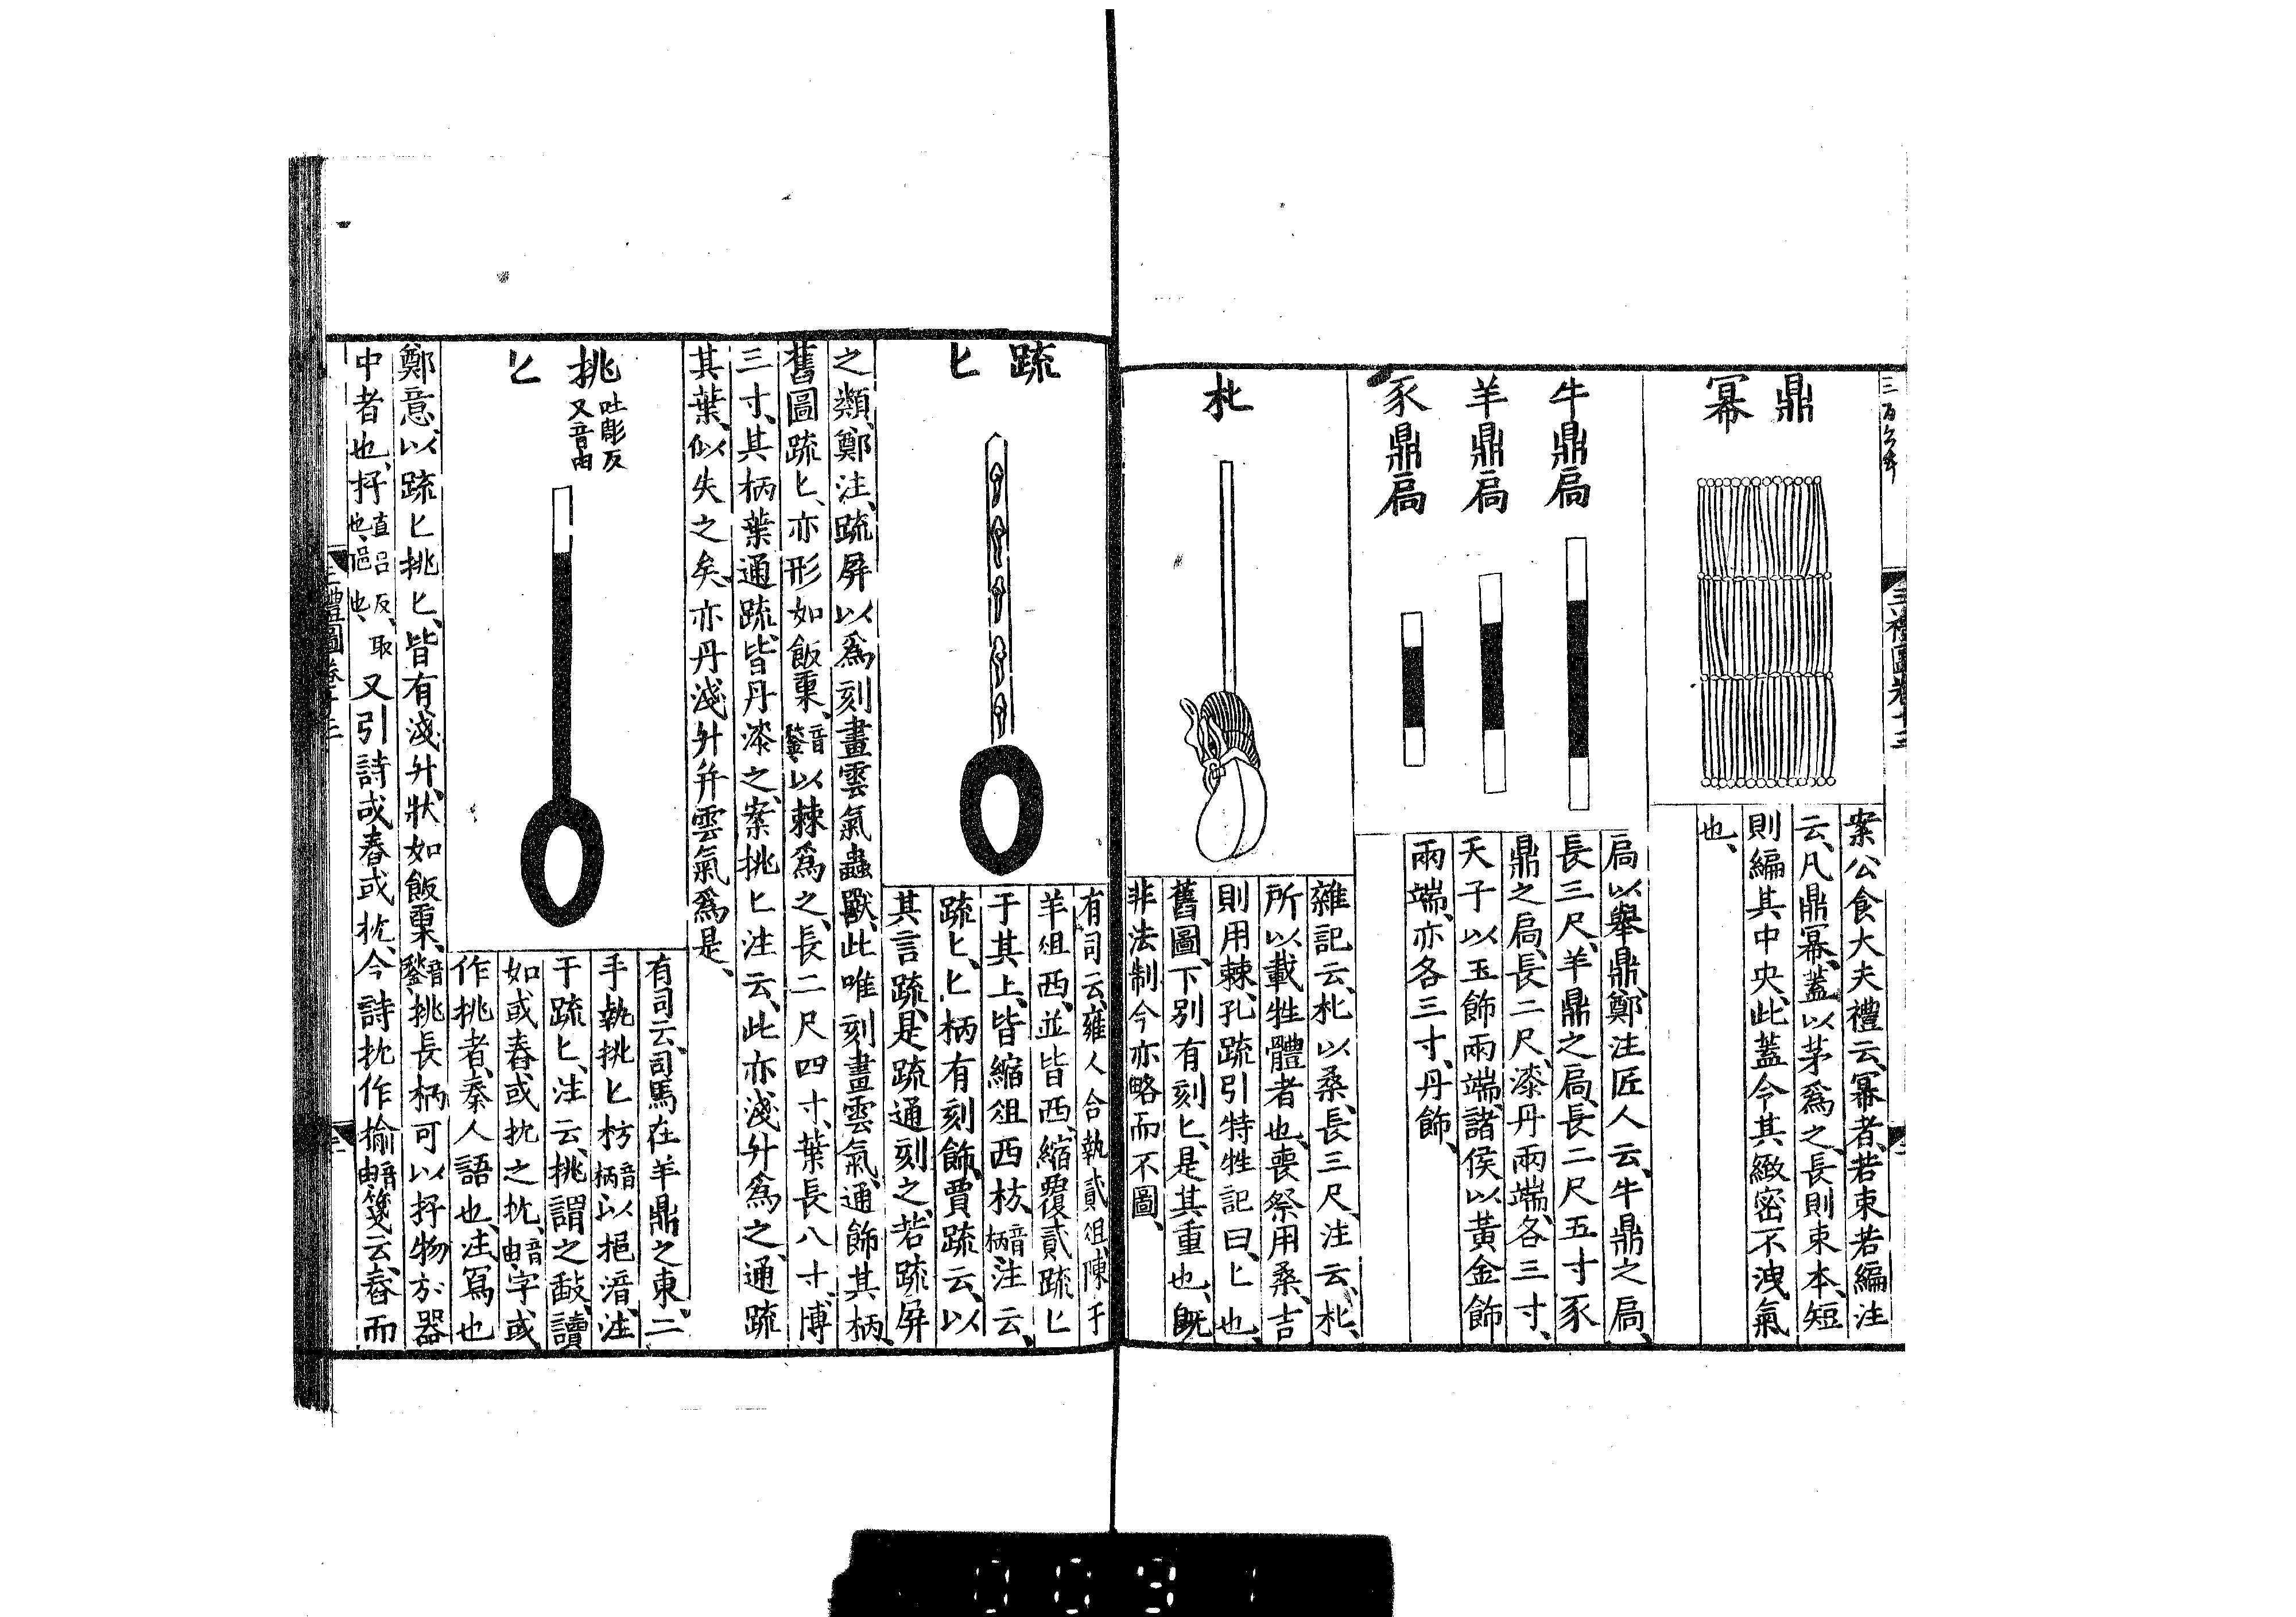 鼎
冪
案公食大夫禮云、冪者、若束若編、注
云、凡鼎冪、蓋以茅爲之、長則束本、短
則編其中央、此蓋令其緻密不洩氣
也、
牛鼎扃
羊鼎扃
豕鼎扃
扃以舉鼎、鄭注匠人云、牛鼎之扃、
長三尺、羊鼎之扃、長二尺五寸、豕
鼎之扃、長二尺、漆丹兩端、各三寸、
天子以玉飾兩端、諸侯以黃金飾
兩端、亦各三寸、丹飾、
朼
雜記云、朼以桑、長三尺、注云、朼、
所以載牲體者也、喪祭用桑、吉
則用棘、孔疏引特牲記曰、匕也、
舊圖、下別有刻匕、是其重也、既
非法制今亦略而不圖、
疏
匕
有司云、雍人合執貳俎、陳于
羊俎西、並皆西縮、覆貳疏匕
于其上、皆縮俎西枋、音柄注云、
疏匕、匕柄有刻飾、賈疏云、以
其言疏、是疏通刻之、若疏屏
之類、鄭注、疏屏以爲刻畫雲氣蟲獸、此唯刻畫雲氣、通飾其柄、
舊圖疏匕、亦形如飯橾、音鍫以棘爲之、長二尺四寸、葉長八寸、博
三寸、其柄葉通疏、皆丹漆之、案挑匕注云、此亦淺升爲之、通疏
其葉、似失之矣、亦丹淺升并雲氣爲是、
挑吐彫反又音由
匕
有司云、司馬在羊鼎之東、二
手執挑匕枋音柄以挹湆、注
于疏匕、注云、挑謂之㪯、讀
如或舂或抌之抌、音由字或
作挑者、秦人語也、注、寫也
鄭意、以疏匕挑匕、皆有淺升、狀如飯橾、音鍫挑長柄可以抒物於器
中者也、抒直呂反、取也、挹也、又引詩或舂或抌、今詩抌作揄音由箋云、舂而
三禮圖卷十三